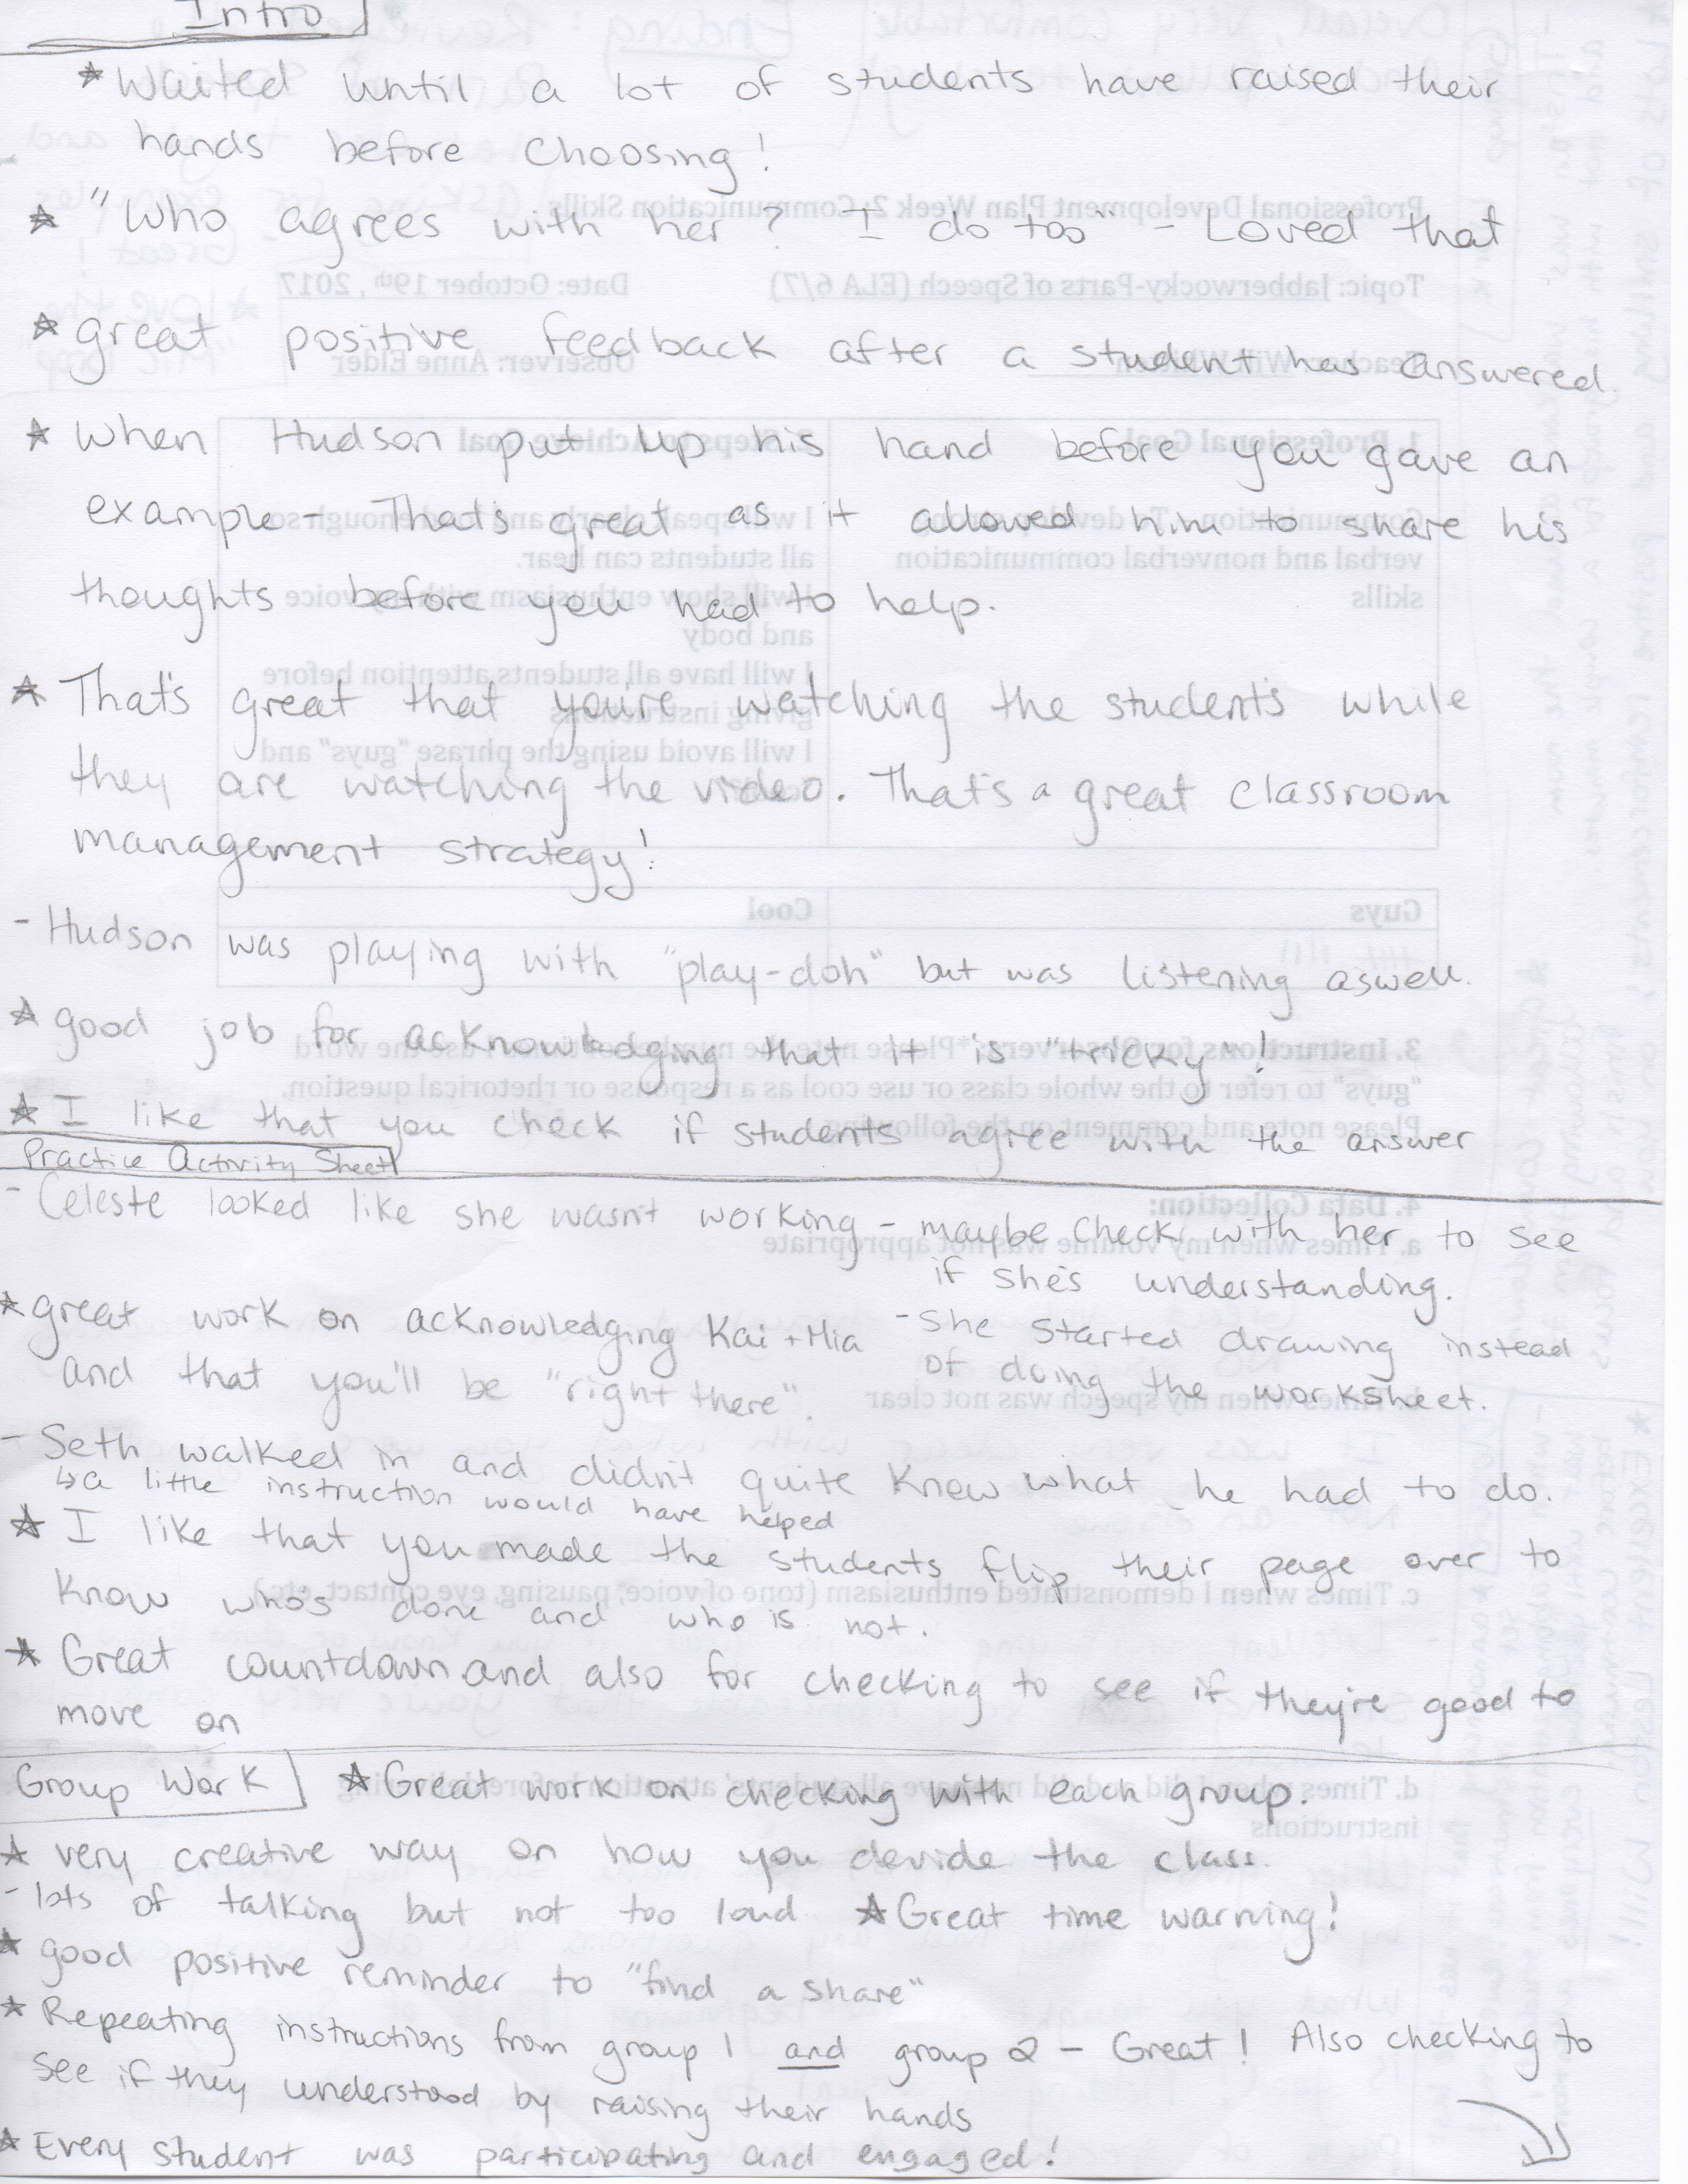 Intro
* Waited until a lot of students have raised their
hands before choosing!
* "Who agrees with her? I do too" - Loved that
* great positive feedback after a student has answered.
* When Hudson put up his hand before you gave an
example - That's great as it allowed him to share his
thoughts before you had to help.
* That's great that you're watching the students while
they are watching the video. That's a great classroom
management strategy!
- Hudson was playing with "play-doh" but was listening aswell.
* good job for acknowledging that it is "tricky"!
* I like that you check if students agree with the answer
Practice Activity Sheet
- Celeste looked like she wasn't working - maybe check with her to see
if she's understanding.
* great work on acknowledging Kai + Mia
and that you'll be "right there".
- She started drawing instead
of doing the worksheet.
- Seth walked in and didn't quite know what he had to do.
↳ a little instruction would have helped
* I like that you made the students flip their page over to
know who's done and who is not.
* Great countdown and also for checking to see if they're good to
move on
Group Work
* Great work on checking with each group.
* very creative way on how you devide the class.
- lots of talking but not too loud * Great time warning!
* good positive reminder to "find a share"
* Repeating instructions from group 1 and group 2 - Great! Also checking to
see if they understood by raising their hands
* Every student was participating and engaged!